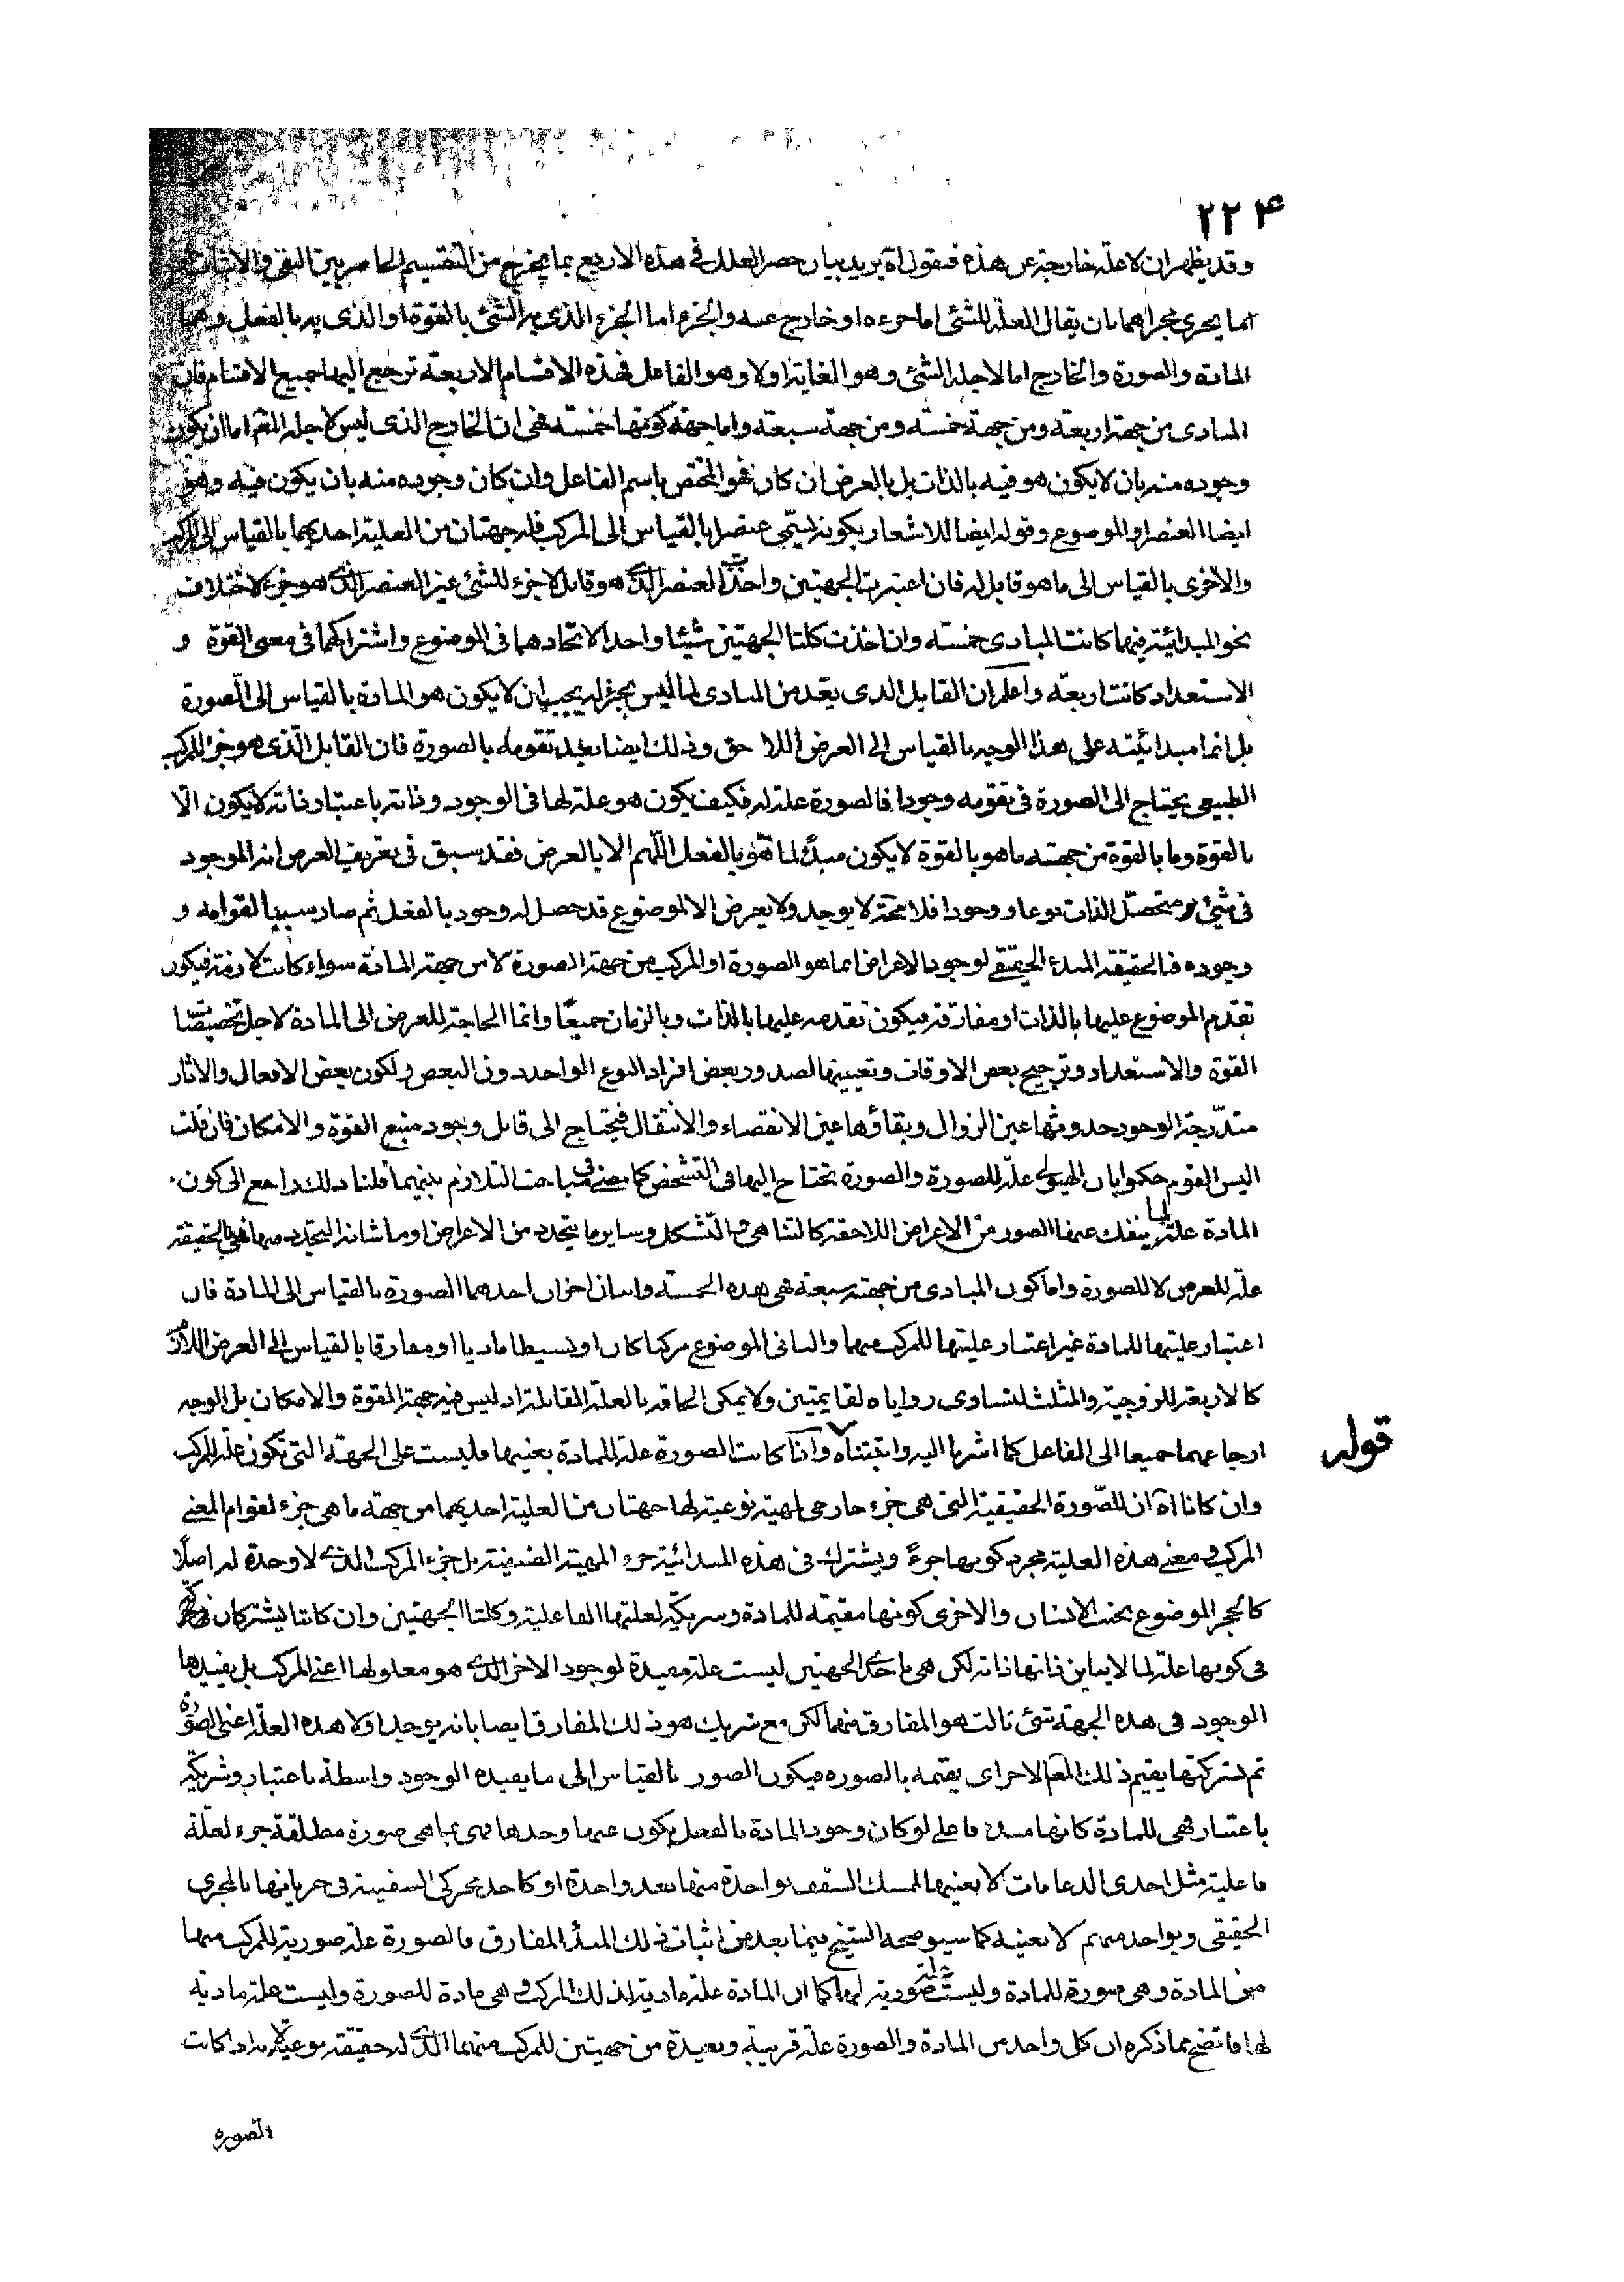 ۲۲۴
وقد يظهر ان لا علة خارجة عن هذه فنقول آه يريد بيان حصر العلل في هذه الاربع بما يخرج من التقسيم الحاصر بين النفى والاثبات
مما يجرى مجراهما بان يقال العلة للشئ اما جزءه او خارج عنه والجزء اما الجزء الذى به الشئ بالقوة او الذى به بالفعل وهما
المادة والصورة والخارج اما لاجله الشئ وهو الغاية اولا وهو الفاعل فهذه الاقسام الاربعة ترجع اليها جميع الاقسام فان
المبادى من جهة اربعة ومن جهة خمسة ومن جهة سبعة واما جهة كونها خمسة فهى ان الخارج الذى ليس لاجله المعلول اما ان يكون
وجوده منه بان لا يكون هو فيه بالذات بل بالعرض ان كان فهو المختص باسم الفاعل وان كان وجوده منه بان يكون فيه وهو
ايضا العنصر والموضوع وقوله ايضا للاشعار بكونه يسمى عنصرا بالقياس الى المركب فله جهتان من العلية احديهما بالقياس الى المركب
والاخرى بالقياس الى ما هو قابل له فان اعتبرت الجهتين واخذت العنصر الذى هو قابل لا جزء للشئ غير العنصر الذى هو جزء لاختلاف
نحو المبدائية فيهما كانت المبادى خمسة وان اخذت كلتا الجهتين شيئا واحدا لاتحادهما فى الموضوع واشتراكهما فى معنى القوة و
الاستعداد كانت اربعة واعلم ان القابل الذى يعد من المبادى لما ليس بجزء له يجب ان لا يكون هو المادة بالقياس الى الصورة
بل انما مبدائيته على هذا الوجه بالقياس الى العرض اللاحق وذلك ايضا بعد تقومه بالصورة فان القابل الذى هو جزء للمركب
الطبيعى يحتاج الى الصورة فى تقومه وجودا فالصورة علة له فكيف يكون هو علة لها فى الوجود وذاته باعتبار ذاته لا يكون الا
بالقوة وما بالقوة من جهة ما هو بالقوة لا يكون مبدأ لما هو بالفعل اللهم الا بالعرض فقد سبق فى تعريف العرض انه الموجود
فى شئ متحصل الذات نوعا ووجودا فلا محة لا يوجد ولا يعرض الا لموضوع قد حصل له وجود بالفعل ثم صار سببا لقوامه و
وجوده فبالحقيقة المبدء الحقيقى لوجود الاعراض انما هو الصورة او المركب من جهة الصورة لا من جهة المادة سواء كانت لازمة فيكون
تقدم الموضوع عليها بالذات او مفارقة فيكون تقدمه عليها بالذات وبالزمان جميعا وانما الحاجة للعرض الى المادة لاجل تخصيصات
القوة والاستعداد وترجيح بعض الاوقات وتعيينها لصدور بعض افراد النوع الواحد دون البعض ولكون بعض الافعال والاثار
متدرجة الوجود حدوثها عين الزوال وبقاؤها عين الانقضاء والانتقال فيحتاج الى قابل وجود منبع القوة والامكان فان قلت
اليس القوم حكموا بان الهيولى علة للصورة والصورة تحتاج اليها فى التشخص كما مضى فى مباحث التلازم بينهما قلنا ذلك راجع الى كون
المادة علة لما ينفك عنها الصور من الاعراض اللاحقة كالتناهى والتشكل وساير ما يتجدد من الاعراض او ما شانه التجدد منها فهى بالحقيقة
علة للعرض لا للصورة واما كون المبادى من جهة سبعة فهى هذه الخمسة واثنان اخران احدهما الصورة بالقياس الى المادة فان
اعتبار عليتها للمادة غير اعتبار عليتها للمركب منهما والثانى الموضوع مركبا كان او بسيطا ماديا او مفارقا بالقياس الى العرض اللازم
كالاربعة للزوجية والمثلث لتساوى زواياه لقايمتين ولا يمكن الحاقه بالعلة القابلة اذ ليس فيه جهة القوة والامكان بل الوجه
ارجاعهما جميعا الى الفاعل كما اشرنا اليه واثبتناه واذا كانت الصورة علة للمادة بعينها فليست على الجهة التى تكون علة للمركب
قوله
وان كانا آه ان للصورة الحقيقية التى هى جزء خارجى لمهية نوعية لها جهتان من العلية احديهما من جهة ما هى جزء لقوام المعنى
المركب ومعنى هذه العلية مجرد كونها جزءً ويشترك فى هذه المبدائية جزء المهية الضعيفة بل جزء المركب الذى لا وحدة له اصلًا
كالحجر الموضوع بجنب الانسان والاخرى كونها مقيمة للمادة وشريكة لعلتها الفاعلية وكلتا الجهتين وان كانتا يشتركان
فى كونها علة لما لا يباين ذاتها ذاته لكن هى باحدى الجهتين ليست علة مفيدة لوجود الاخر الذى هو معلولها اعنى المركب بل يفيدها
الوجود فى هذه الجهة شئ ثالث هو المفارق منهما لكن مع شريك هو ذلك المفارق ايضا بانه يوجد اولا هذه العلة اعنى الصورة
ثم بشركتها يقيم ذلك المعلول الاخر اى يقيمه بالصورة فيكون الصور بالقياس الى ما يفيده الوجود واسطة باعتبار وشريكة
باعتبار فهى للمادة كانها مبدء فاعلى لو كان وجود المادة بالفعل يكون عنها وحدها فهى بما هى صورة مطلقة جزء لعلة
فاعلية مثل احدى الدعامات لا بعينها لمسك السقف بواحدة منها بعد واحدة او كاحد محركى السفينة فى جريانها بالمجرى
الحقيقى وبواحد منهم لا بعينه كما سيوضحه الشيخ فيما بعد من اثبات ذلك المبدأ المفارق فالصورة علة صورية للمركب منها
من المادة وهى صورة للمادة وليست علة صورية لها كما ان المادة علة مادية لذلك المركب وهى مادة للصورة وليست علة مادية
لها فاتضح مما ذكره ان كل واحد من المادة والصورة علة قريبة وبعيدة من جهتين للمركب منهما الذى له حقيقة نوعية اذ كانت
الصورة